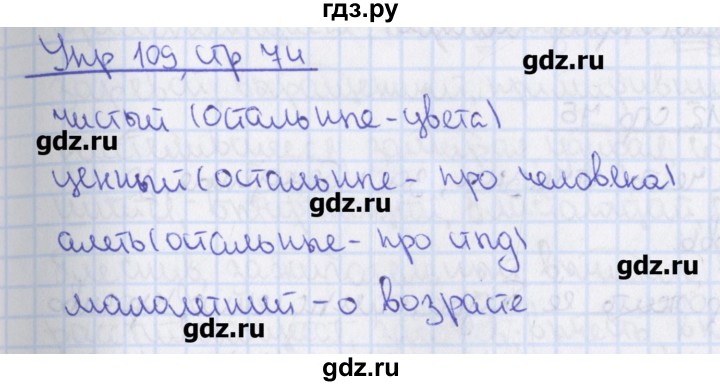 гдз.ру
Упр 109, стр 74
gdz.ru
чистый (остальные - цвета)
gdz.ru
ценный (остальные - про человека)
gdz.ru
алеть (остальные - про стыд)
gdz.ru
малолетний - о возрасте
gdz.ru
gdz.ru